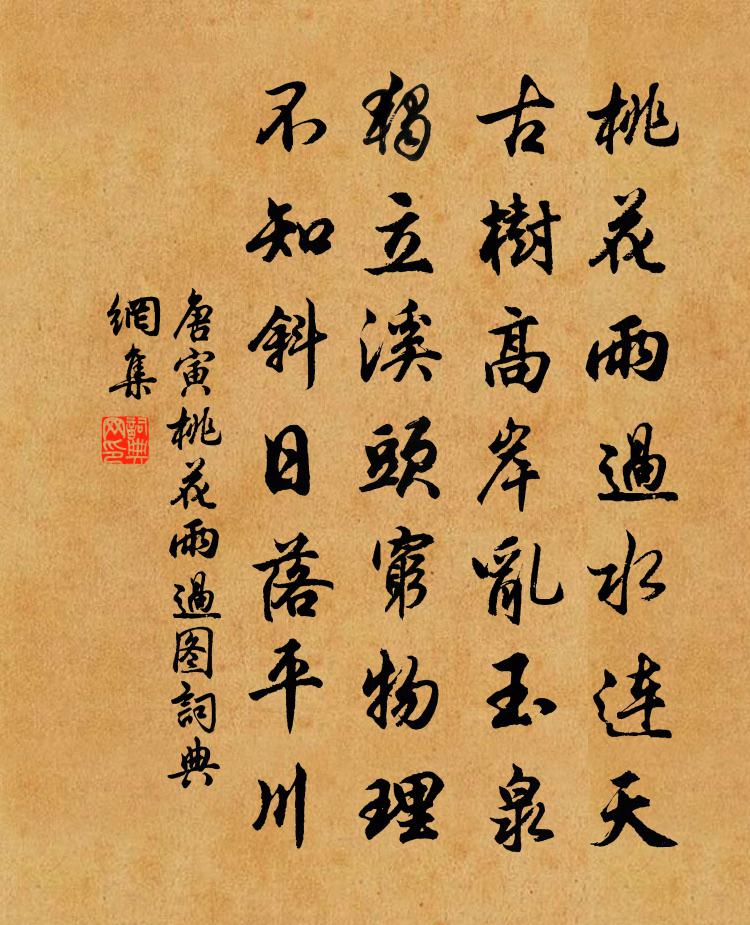 桃花雨過水連天
古樹高岸亂玉泉
獨立溪頭窮物理
不知斜日落平川
唐寅桃花雨過图詞典
網集
詞典
网印